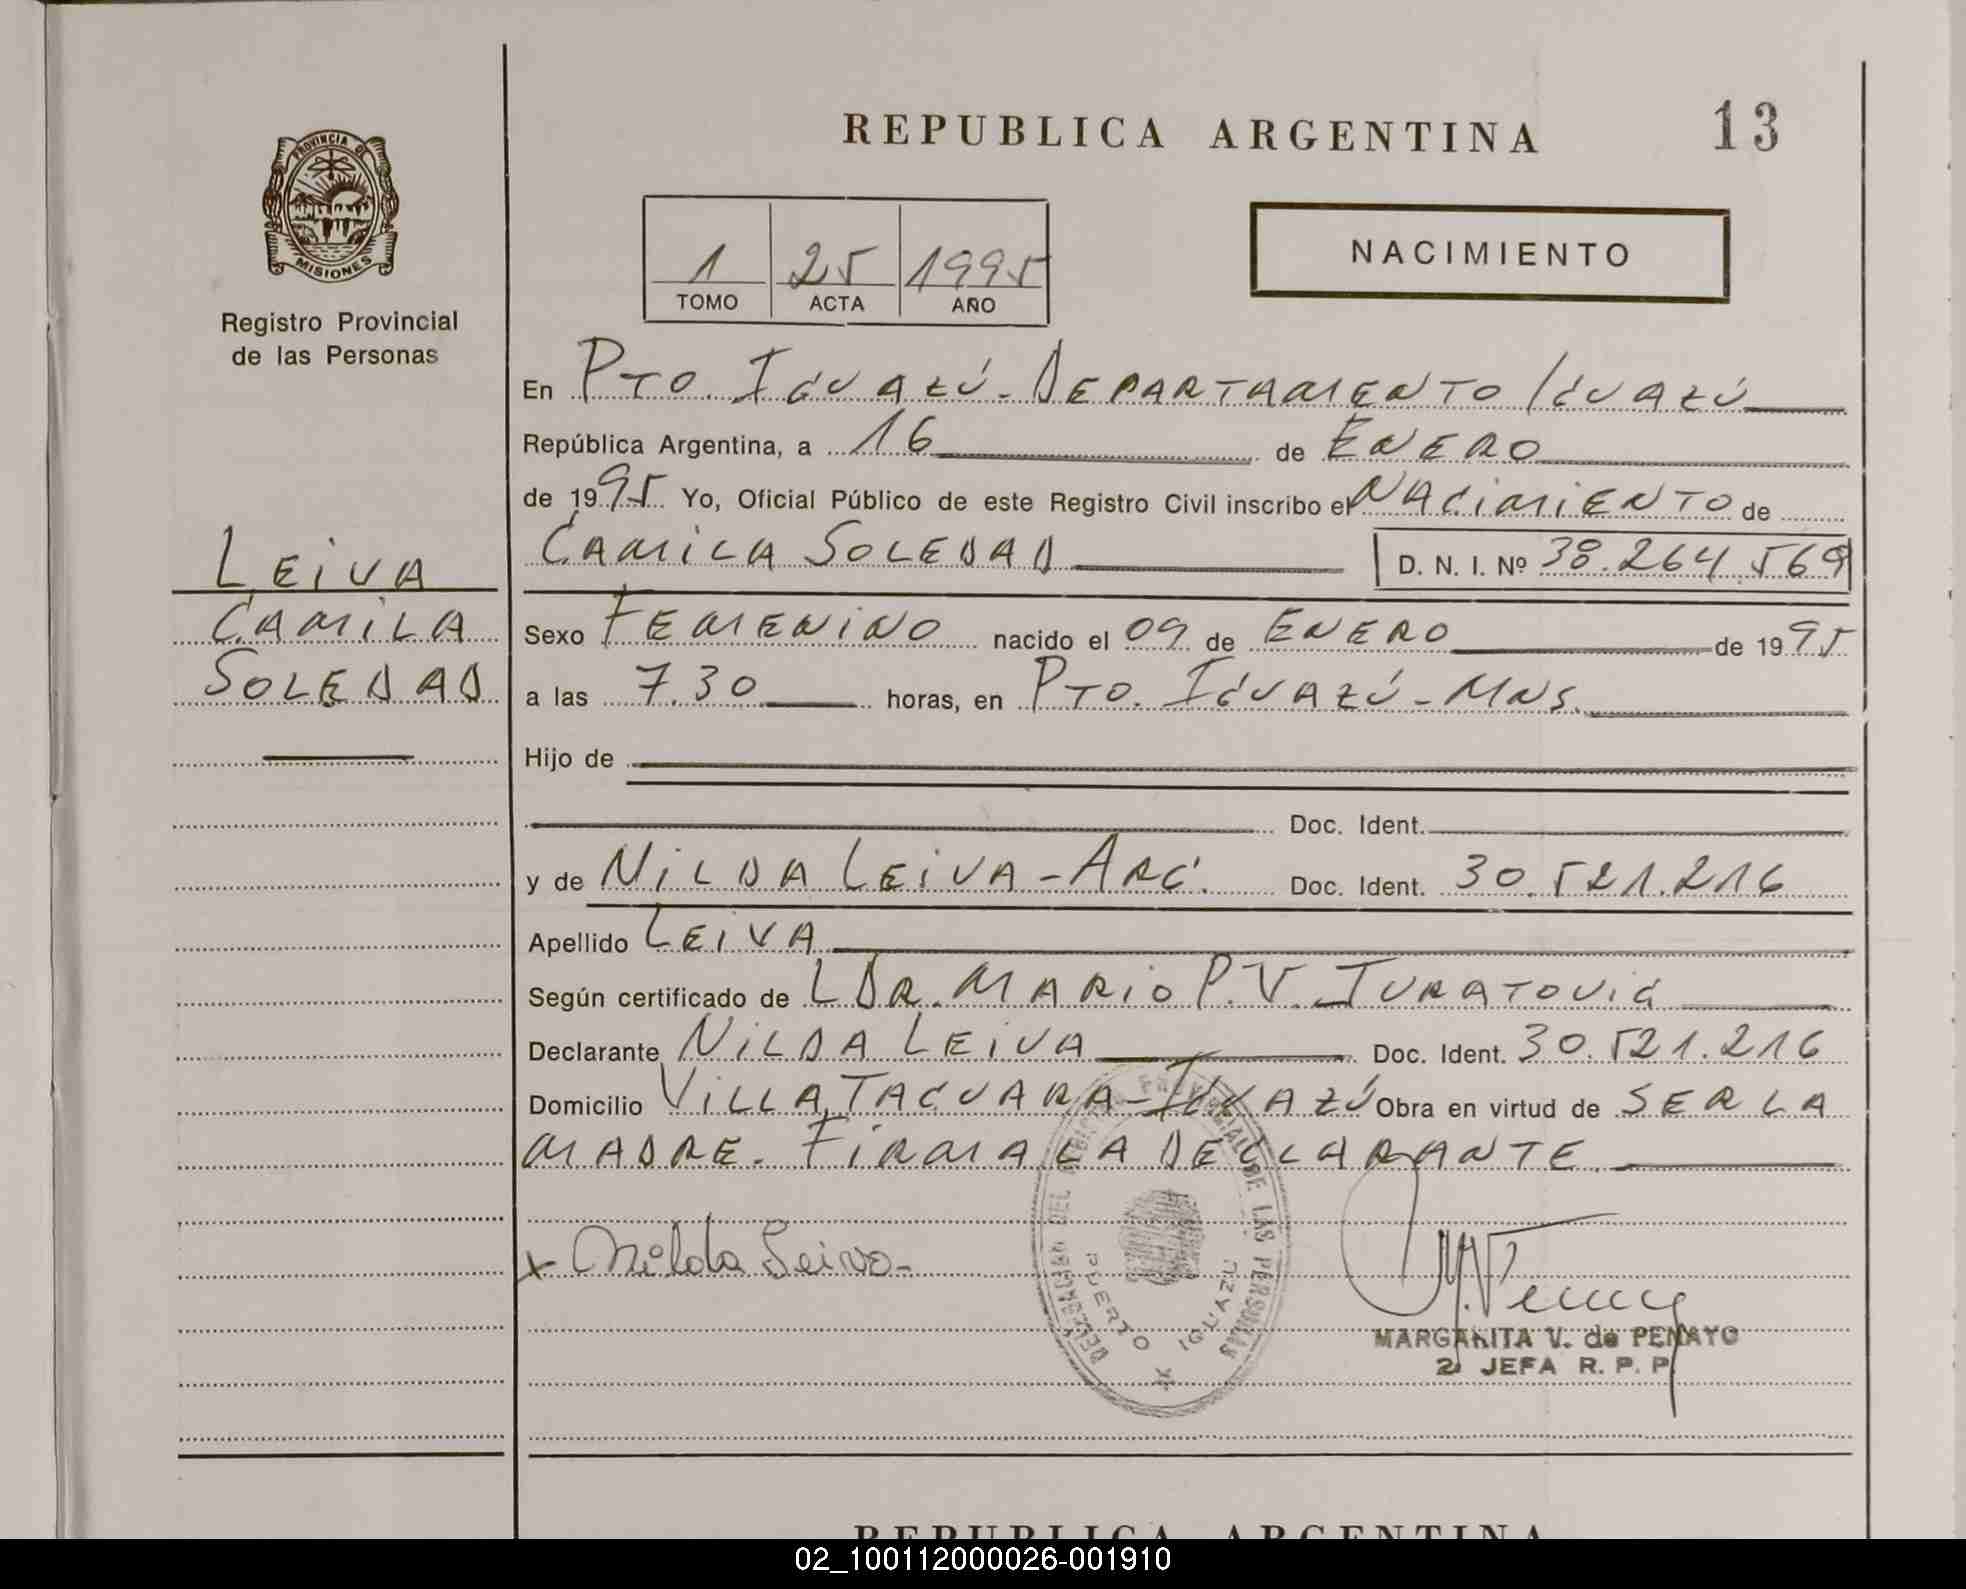 REPUBLICA ARGENTINA
13
PROVINCIA DE
MISIONES
Registro Provincial
de las Personas
1 25 1995
TOMO ACTA AÑO
NACIMIENTO
En PTO. IGUAZÚ - DEPARTAMENTO IGUAZÚ
República Argentina, a 16 de ENERO
de 1995 Yo, Oficial Público de este Registro Civil inscribo el NACIMIENTO de
CAMILA SOLEDAD D. N. I. Nº 38.264.569
LEIVA
CAMILA
SOLEDAD
Sexo FEMENINO nacido el 09 de ENERO de 1995
a las 7.30 horas, en PTO. IGUAZÚ - MNS.
Hijo de
Doc. Ident.
y de NILDA LEIVA - ARG. Doc. Ident. 30.521.216
Apellido LEIVA
Según certificado de L DR. MARIO P. V. JURATOVIC
Declarante NILDA LEIVA Doc. Ident. 30.521.216
Domicilio VILLA TACUARA - IGUAZÚ Obra en virtud de SER LA
MADRE. FIRMA LA DECLARANTE.
x Nilda Leiva -
DELEGACION DEL REGISTRO PROVINCIAL DE LAS PERSONAS
PUERTO IGUAZU
MARGARITA V. de PENAYO
2 JEFA R. P. P.
REPUBLICA ARGENTINA
02_100112000026-001910